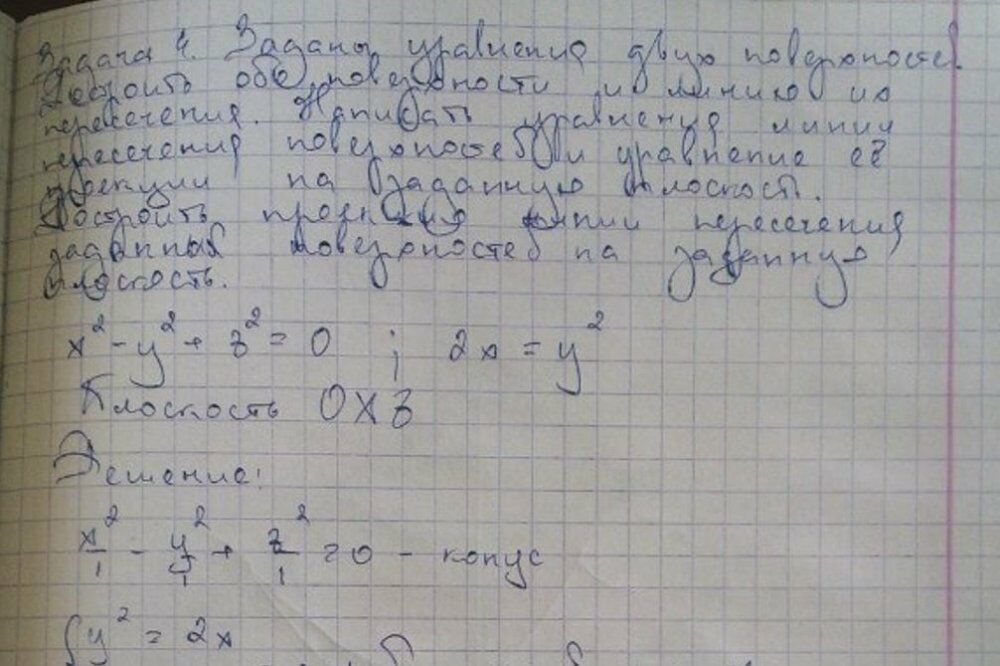 Задача 4. Заданы уравнения двух поверхностей
Построить обе поверхности и линию их
пересечения. Написать уравнения линии
пересечения поверхностей и уравнение её
проекции на заданную плоскость.
Построить проекцию линии пересечения
заданных поверхностей на заданную
плоскость.
x² - y² + z² = 0 ; 2x = y²
Плоскость OXZ
Решение:
x²/1 - y²/1 + z²/1 = 0 - конус
{y² = 2x